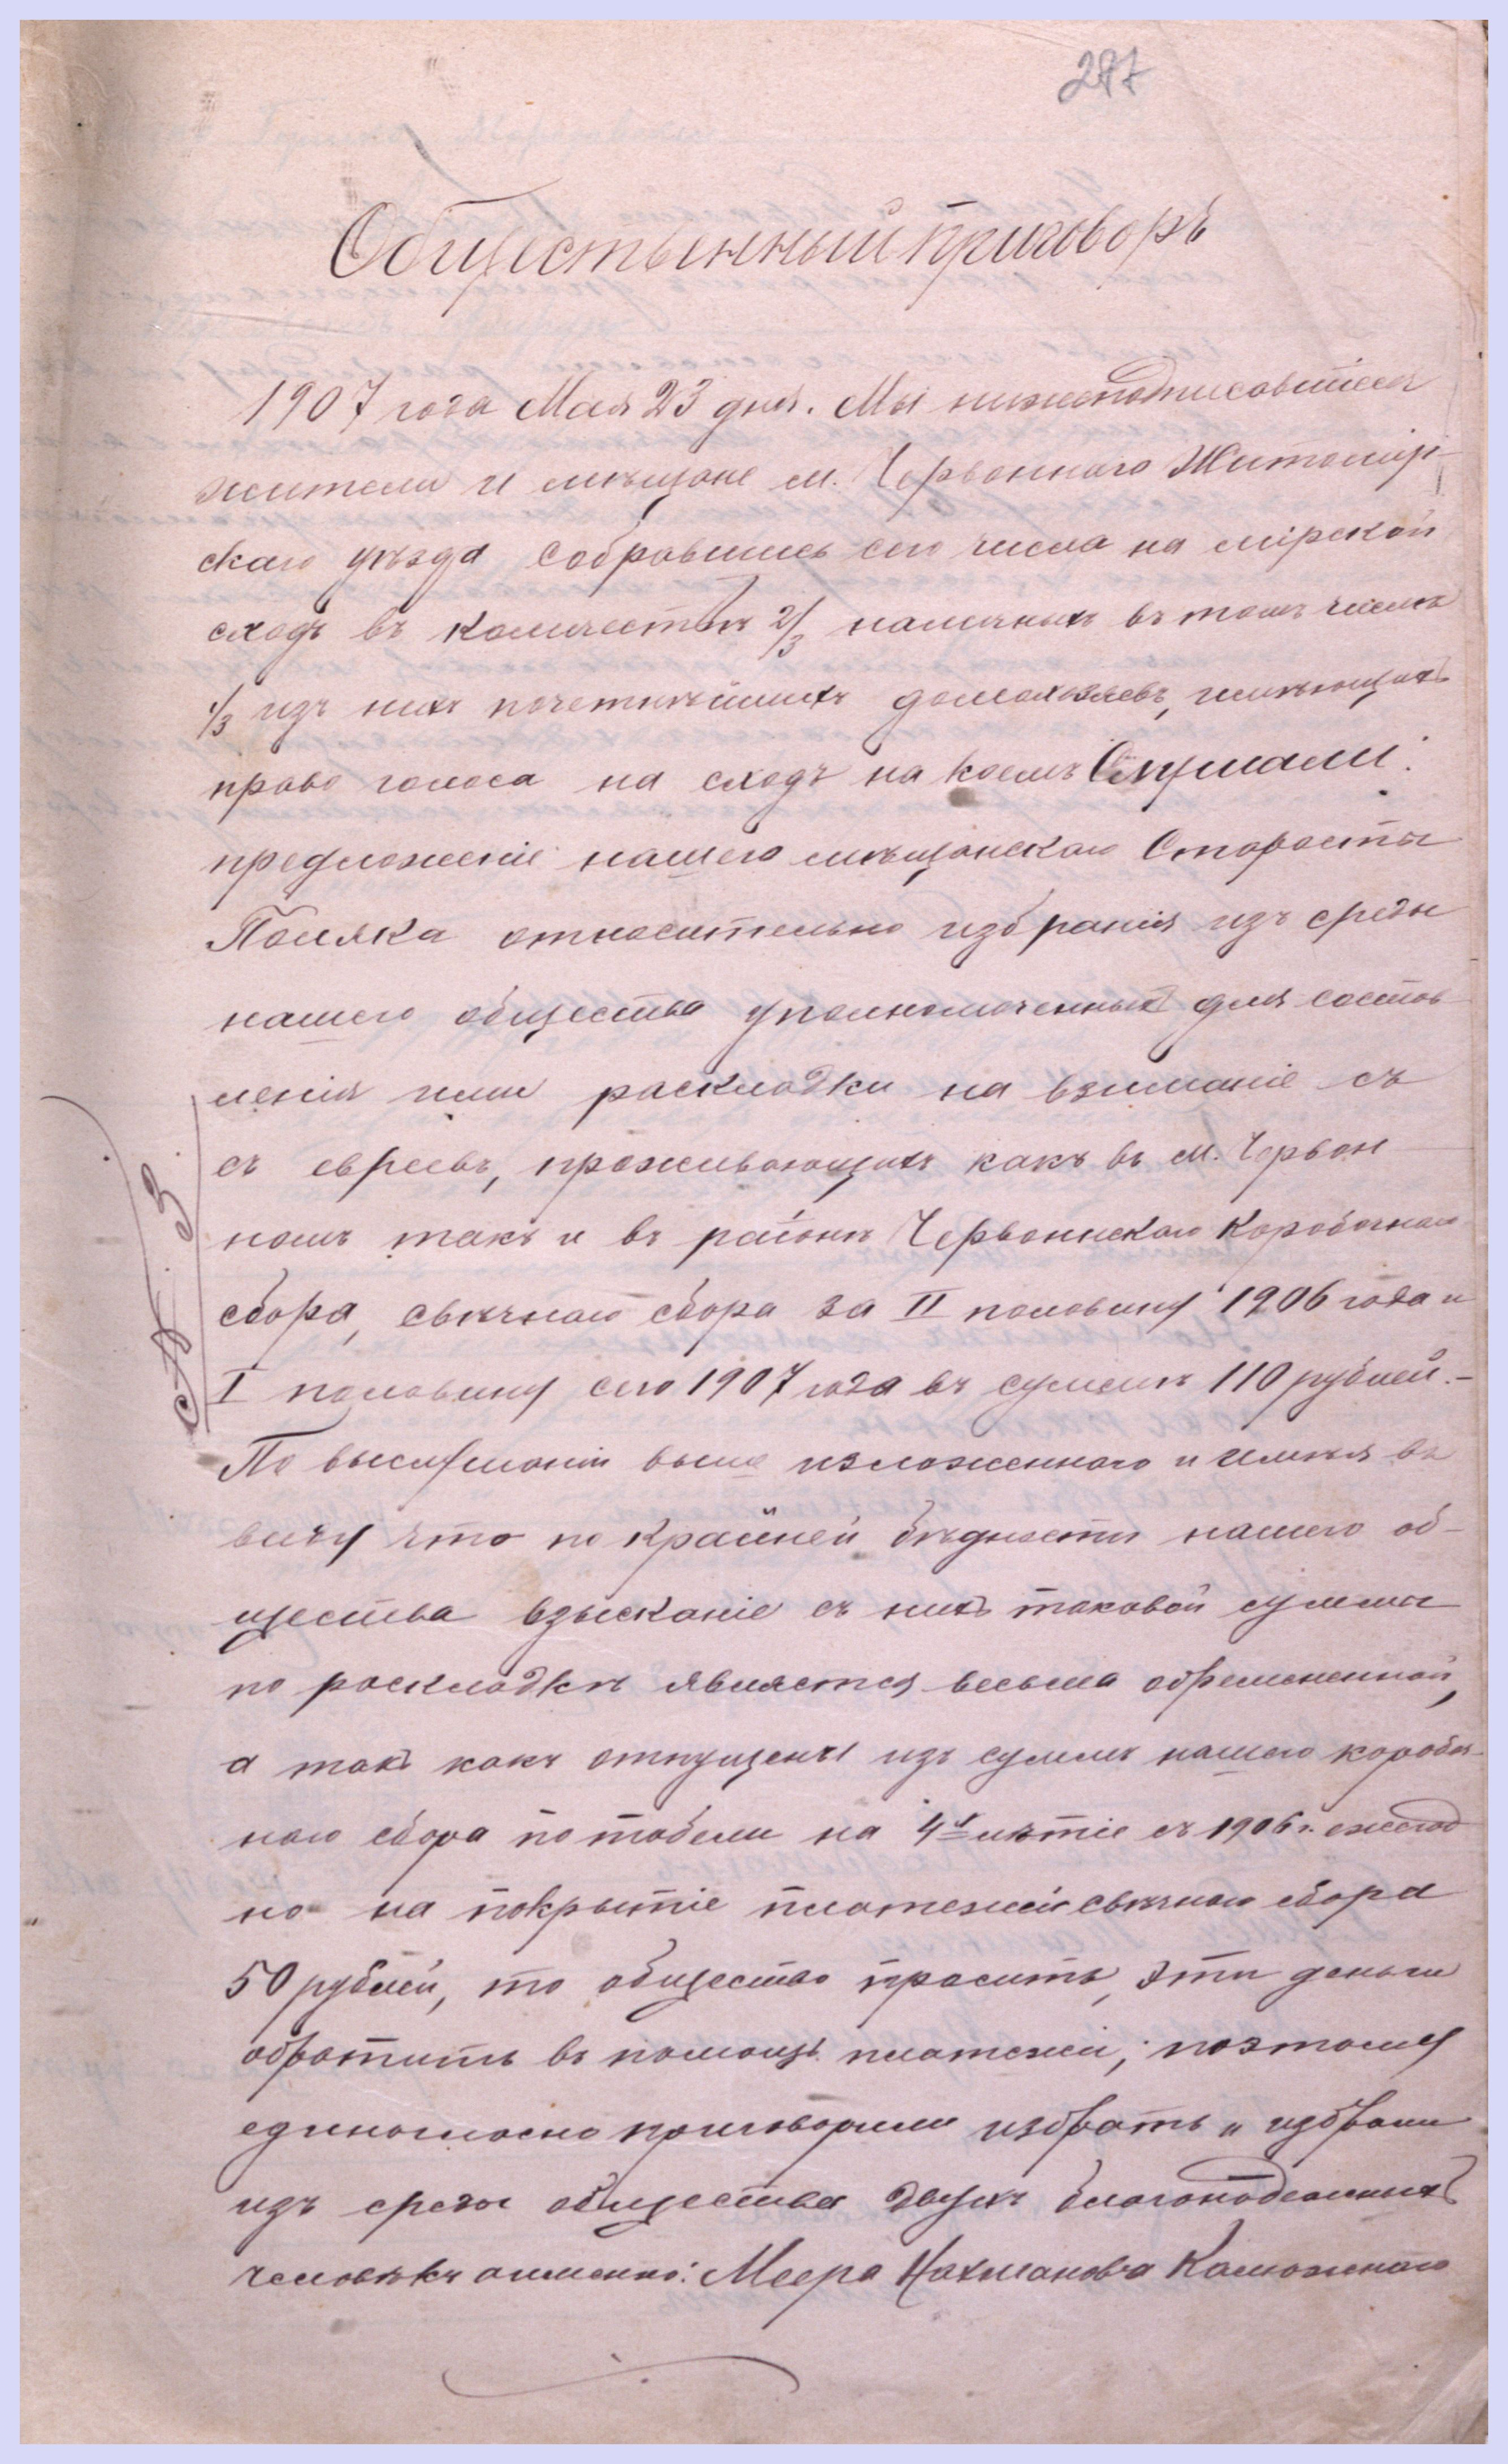 287
Общественный приговоръ
1907 года Мая 23 дня. Мы нижеподписавшіеся
жители и мѣщане м. Червоннаго Житомір-
скаго уѣзда собравшись сего числа на мірской
сходъ въ количествѣ 2/3 наличныхъ въ томъ числѣ
1/3 изъ нихъ почетнѣйшихъ домохозяевъ, имѣющихъ
право голоса на сходѣ на коемъ Слушали:
предложеніе нашего мѣщанскаго Старосты
Поляка относительно избранія изъ среды
нашего общества уполномоченныхъ для состав-
ленія ими раскладки на взиманіе съ
съ евреевъ, проживающихъ какъ въ м. Червон-
номъ такъ и въ районѣ Червонскаго Коробочнаго
сбора, свѣчнаго сбора за II половину 1906 года и
I половину сего 1907 года въ суммѣ 110 рублей.-
По выслушаніи выше изложеннаго и имѣя въ
виду что по крайней бѣдности нашего об-
щества взысканіе съ нихъ таковой суммы
по раскладкѣ является весьма обремененной,
а такъ какъ отпущены изъ суммъ нашего коробоч-
наго сбора по табели на 4х лѣтіе съ 1906 г. ежегод
но на покрытіе платежей свѣчнаго сбора
50 рублей, то общество проситъ, эти деньги
обратить въ помощь платежей; поэтому
единогласно приговорили избрать и избрали
изъ среды общества двухъ благонадежныхъ
человѣкъ а именно: Меера Нахмановича Каможнаго